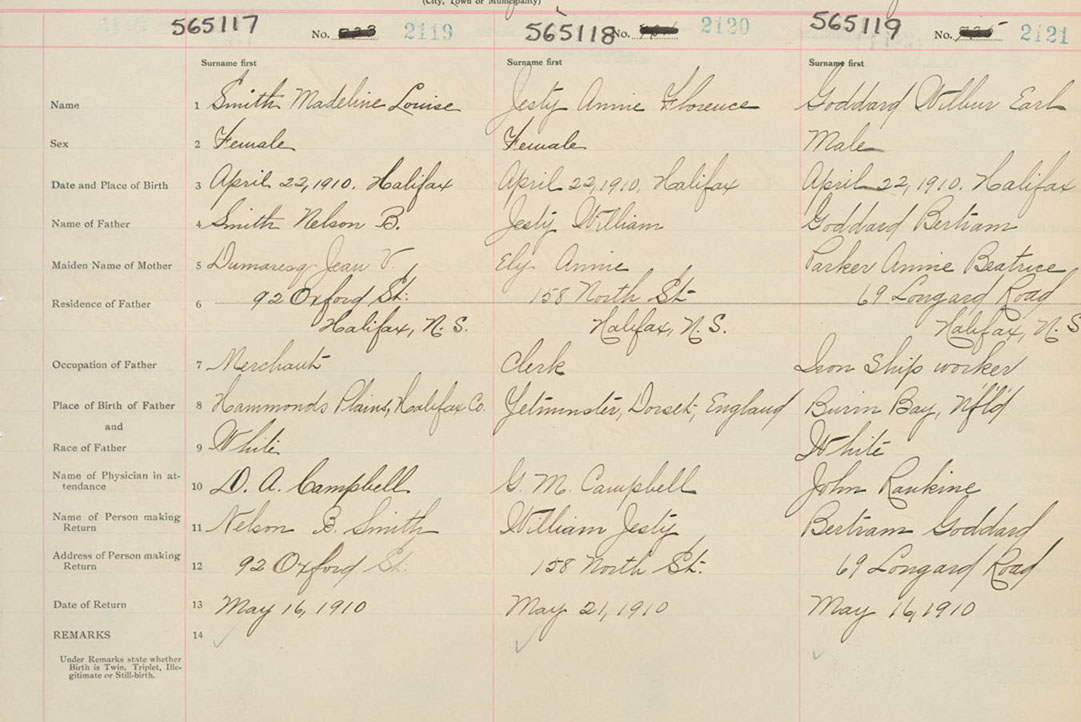 (City, Town or Municipality)
565117 No. 2119 565118 No. 2120 565119 No. 2121
Surname first Surname first Surname first
Name 1 Smith Madeline Louise Jesty Annie Florence Goddard Wilbur Earl
Sex 2 Female Female Male
Date and Place of Birth 3 April 22, 1910. Halifax April 22, 1910, Halifax April 22, 1910. Halifax
Name of Father 4 Smith Nelson B. Jesty William Goddard Bertram
Maiden Name of Mother 5 Dumaresq Jean V. Ely Annie Parker Annie Beatrice
Residence of Father 6 92 Oxford St: 158 North St 69 Longard Road
Halifax, N.S. Halifax, N.S. Halifax, N.S
Occupation of Father 7 Merchant Clerk Iron Ship worker
Place of Birth of Father 8 Hammonds Plains, Halifax Co. Yetminster, Dorset, England Burin Bay, Nf'l'd
and
Race of Father 9 White White
Name of Physician in at-
tendance 10 D. A. Campbell G. M. Campbell John Rankine
Name of Person making
Return 11 Nelson B. Smith William Jesty Bertram Goddard
Address of Person making
Return 12 92 Oxford St: 158 North St. 69 Longard Road
Date of Return 13 May 16, 1910 May 21, 1910 May 16, 1910
REMARKS 14
Under Remarks state whether
Birth is Twin, Triplet, Ille-
gitimate or Still-birth.